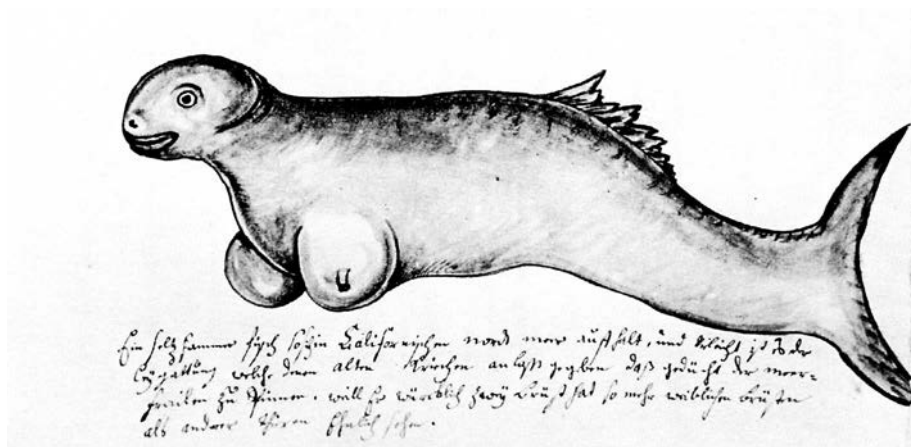 Ein seltzsamer fisch so sich in Californischen nord meer aufhalt, und vileicht ist es der
gattung welche denen alten Griechen anlaß gegeben daß gedicht der meer-
freilen zu spinnen. weill sie würcklich zwey brüst hat so mehr weiblichen brüsten
als anderer thüren ähnlich sehen.